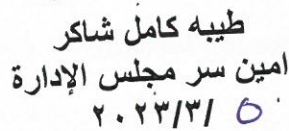 طيبه كامل شاكر
امين سر مجلس الإدارة
٥ /٢٠٢٣/٣